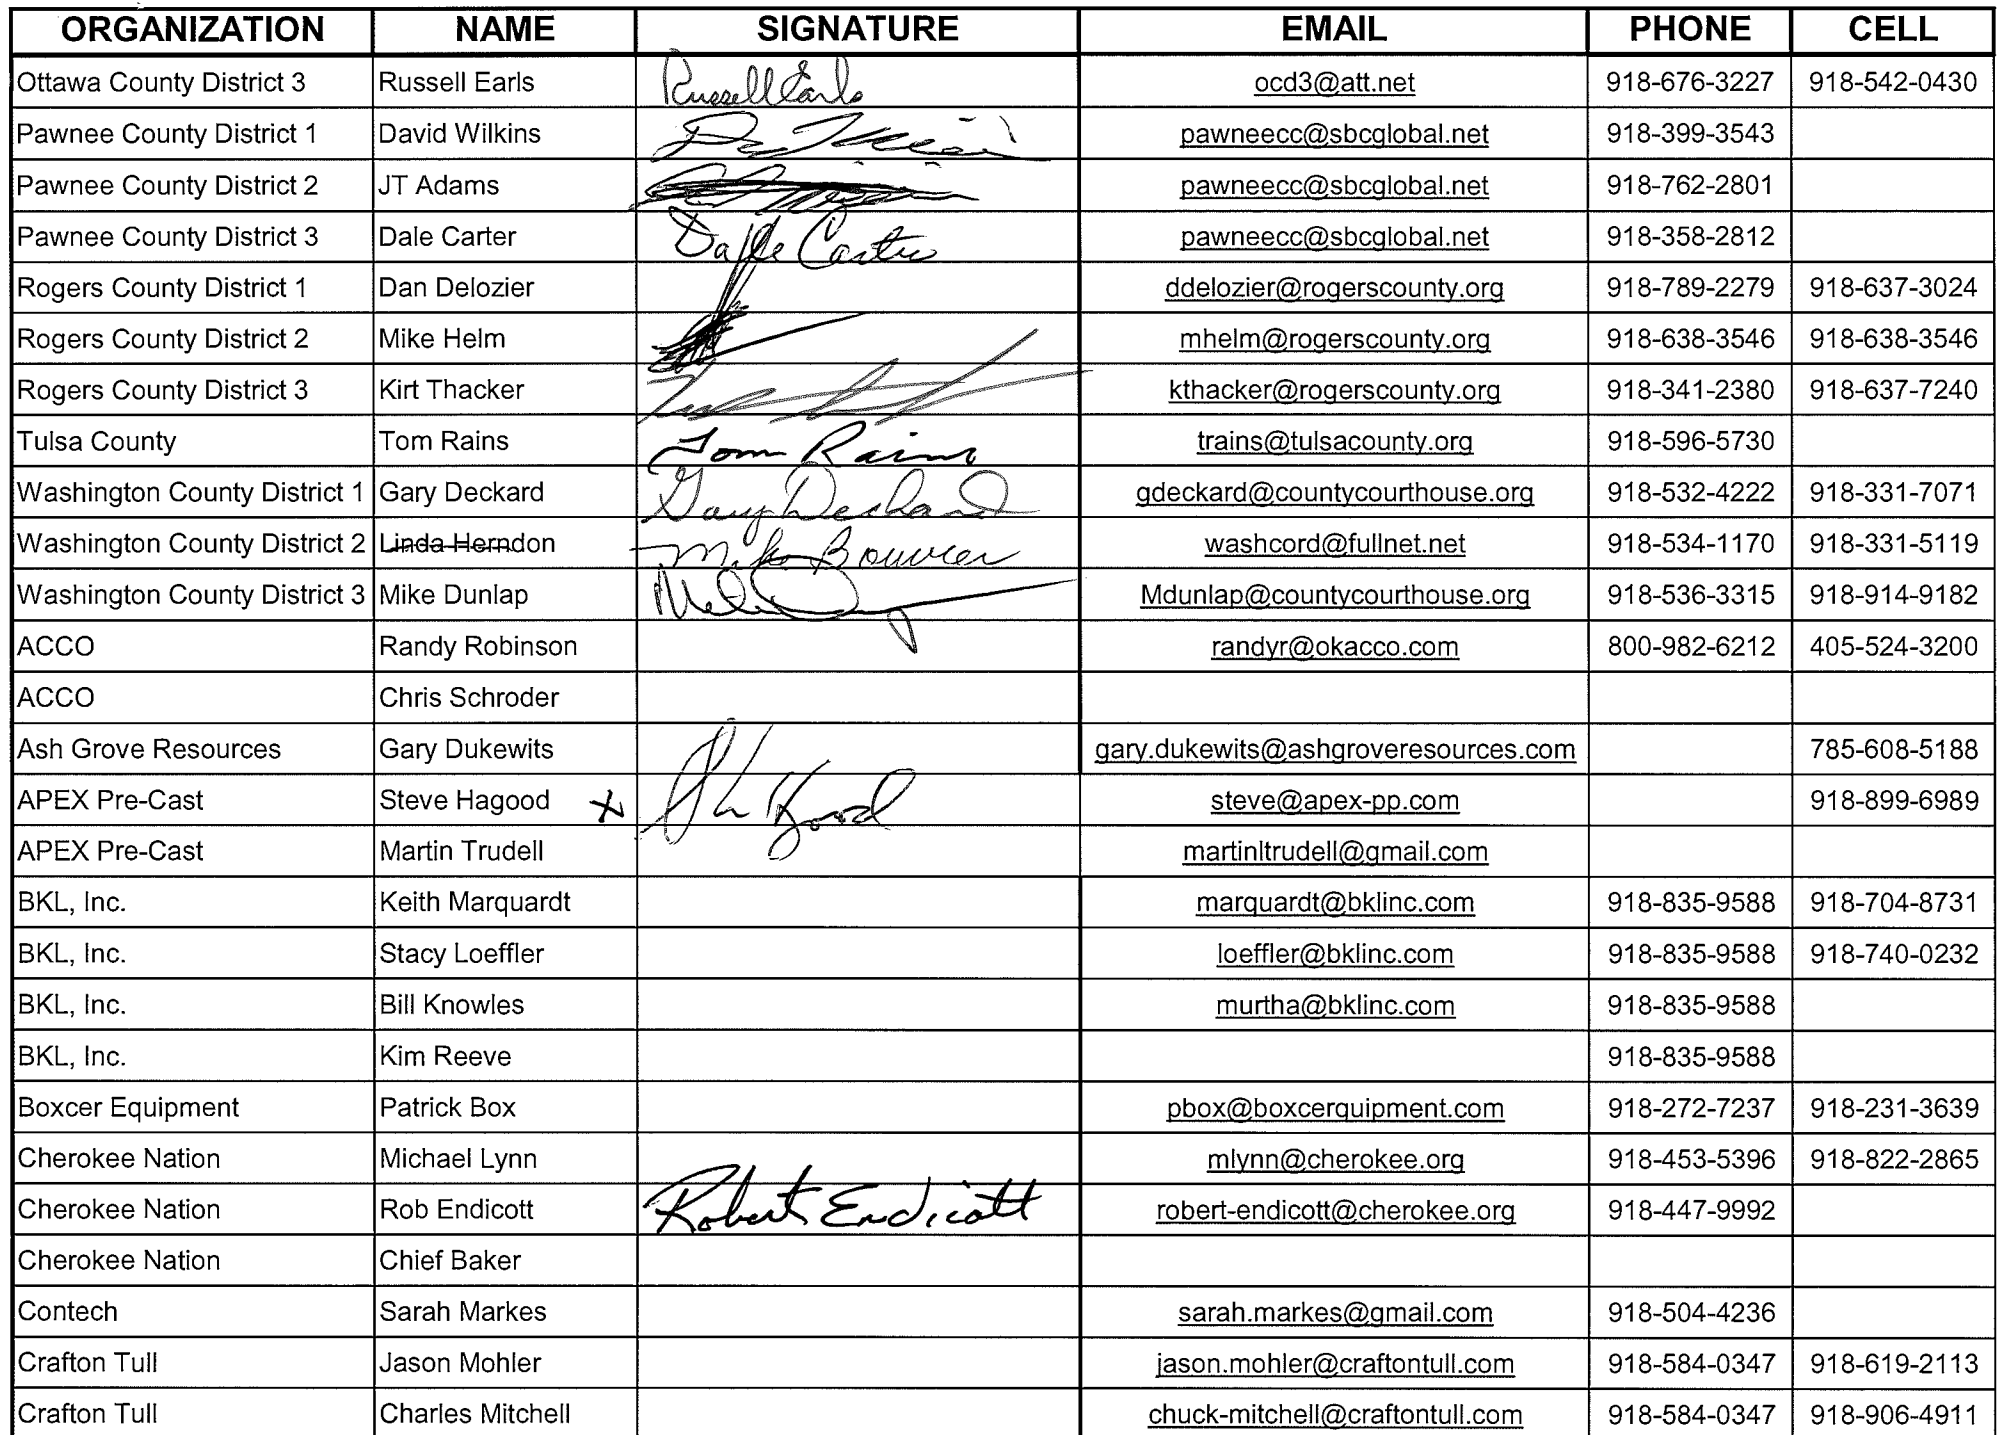 ORGANIZATION NAME SIGNATURE EMAIL PHONE CELL
Ottawa County District 3 Russell Earls Russell Earls ocd3@att.net 918-676-3227 918-542-0430
Pawnee County District 1 David Wilkins pawneecc@sbcglobal.net 918-399-3543
Pawnee County District 2 JT Adams pawneecc@sbcglobal.net 918-762-2801
Pawnee County District 3 Dale Carter Dale Carter pawneecc@sbcglobal.net 918-358-2812
Rogers County District 1 Dan Delozier ddelozier@rogerscounty.org 918-789-2279 918-637-3024
Rogers County District 2 Mike Helm mhelm@rogerscounty.org 918-638-3546 918-638-3546
Rogers County District 3 Kirt Thacker kthacker@rogerscounty.org 918-341-2380 918-637-7240
Tulsa County Tom Rains Tom Rains trains@tulsacounty.org 918-596-5730
Washington County District 1 Gary Deckard Gary Deckard gdeckard@countycourthouse.org 918-532-4222 918-331-7071
Washington County District 2 Linda Herndon Mike Bouvier washcord@fullnet.net 918-534-1170 918-331-5119
Washington County District 3 Mike Dunlap Mdunlap@countycourthouse.org 918-536-3315 918-914-9182
ACCO Randy Robinson randyr@okacco.com 800-982-6212 405-524-3200
ACCO Chris Schroder
Ash Grove Resources Gary Dukewits gary.dukewits@ashgroveresources.com 785-608-5188
APEX Pre-Cast Steve Hagood x steve@apex-pp.com 918-899-6989
APEX Pre-Cast Martin Trudell martinltrudell@gmail.com
BKL, Inc. Keith Marquardt marquardt@bklinc.com 918-835-9588 918-704-8731
BKL, Inc. Stacy Loeffler loeffler@bklinc.com 918-835-9588 918-740-0232
BKL, Inc. Bill Knowles murtha@bklinc.com 918-835-9588
BKL, Inc. Kim Reeve 918-835-9588
Boxcer Equipment Patrick Box pbox@boxcerquipment.com 918-272-7237 918-231-3639
Cherokee Nation Michael Lynn mlynn@cherokee.org 918-453-5396 918-822-2865
Cherokee Nation Rob Endicott Robert Endicott robert-endicott@cherokee.org 918-447-9992
Cherokee Nation Chief Baker
Contech Sarah Markes sarah.markes@gmail.com 918-504-4236
Crafton Tull Jason Mohler jason.mohler@craftontull.com 918-584-0347 918-619-2113
Crafton Tull Charles Mitchell chuck-mitchell@craftontull.com 918-584-0347 918-906-4911